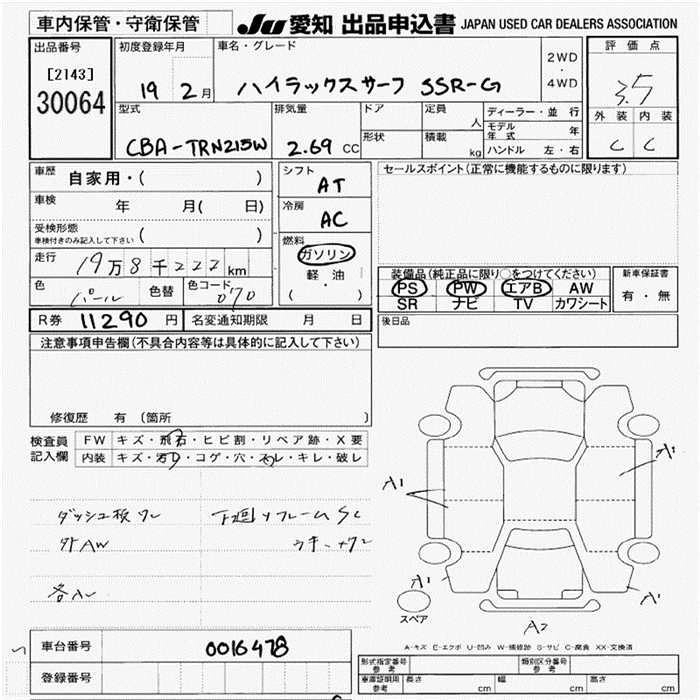 車内保管・守衛保管 JU 愛知 出品申込書 JAPAN USED CAR DEALERS ASSOCIATION
出品番号 初度登録年月 車名・グレード 2WD ・ 4WD 評価点
[2143] 30064 19 2月 ハイラックスサーフ SSR-G 3.5
型式 排気量 ドア 定員 人 ディーラー・並行 外装 内装
形状 積載 kg モデル年式 年
CBA-TRN215W 2.69 CC ハンドル 左・右 C C
車歴 自家用・( ) シフト AT セールスポイント(正常に機能するものに限ります)
車検 年 月( 日) 冷房 AC
受検形態 ( )
車検付きのみ記入して下さい
燃料 ガソリン 軽油 ( ・ )
走行 19万8千222km
装備品(純正品に限り○をつけてください) 新車保証書
色 パール 色替 色コード 070 PS PW エアB AW 有・無
SR ナビ TV カワシート
R券 11290円 名変通知期限 月 日 後日品
注意事項申告欄(不具合内容等は具体的に記入して下さい)
修復歴 有 (箇所 )
検査員記入欄 FW キズ・飛石・ヒビ割・リペア跡・X要
内装 キズ・汚れ・コゲ・穴・スレ・キレ・破レ
A1 A1
ダッシュ板ワレ 下廻りフレームSC
外AW ウキ
各入
A1 A1
スペア A2
A-キズ E-エクボ U-凹み W-補修跡 S-サビ C-腐食 XX-交換済
車台番号 0016478
登録番号
形式指定番号 参考 類別区分番号 参考
車庫証明用 参考 長さ cm 幅 cm 高さ cm